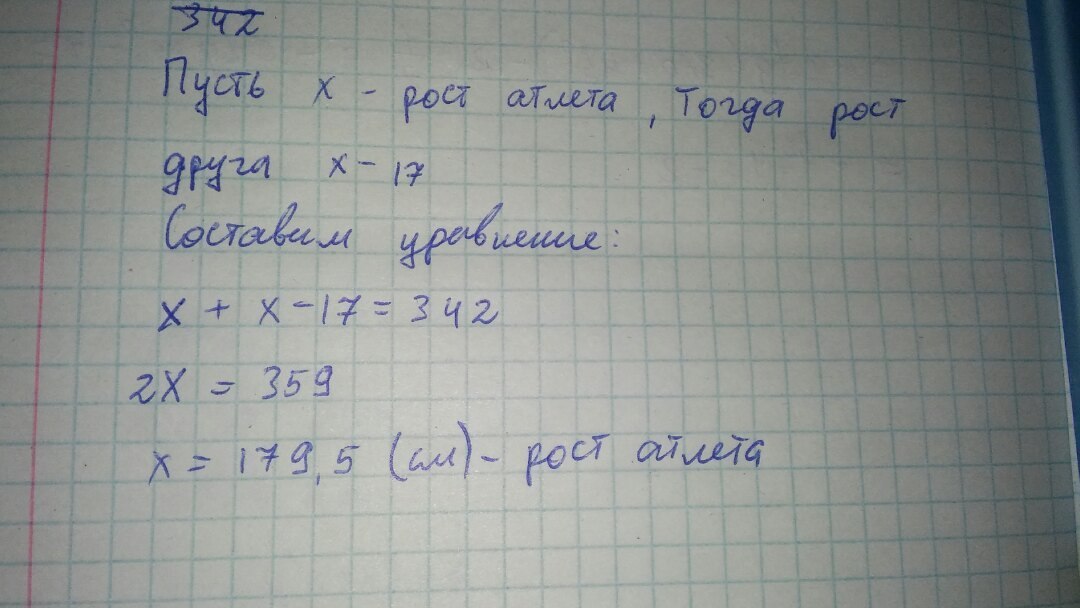 342
Пусть х - рост атлета, Тогда рост
друга х - 17
Составим уравнение:
х + х - 17 = 342
2х = 359
х = 179,5 (см) - рост атлета